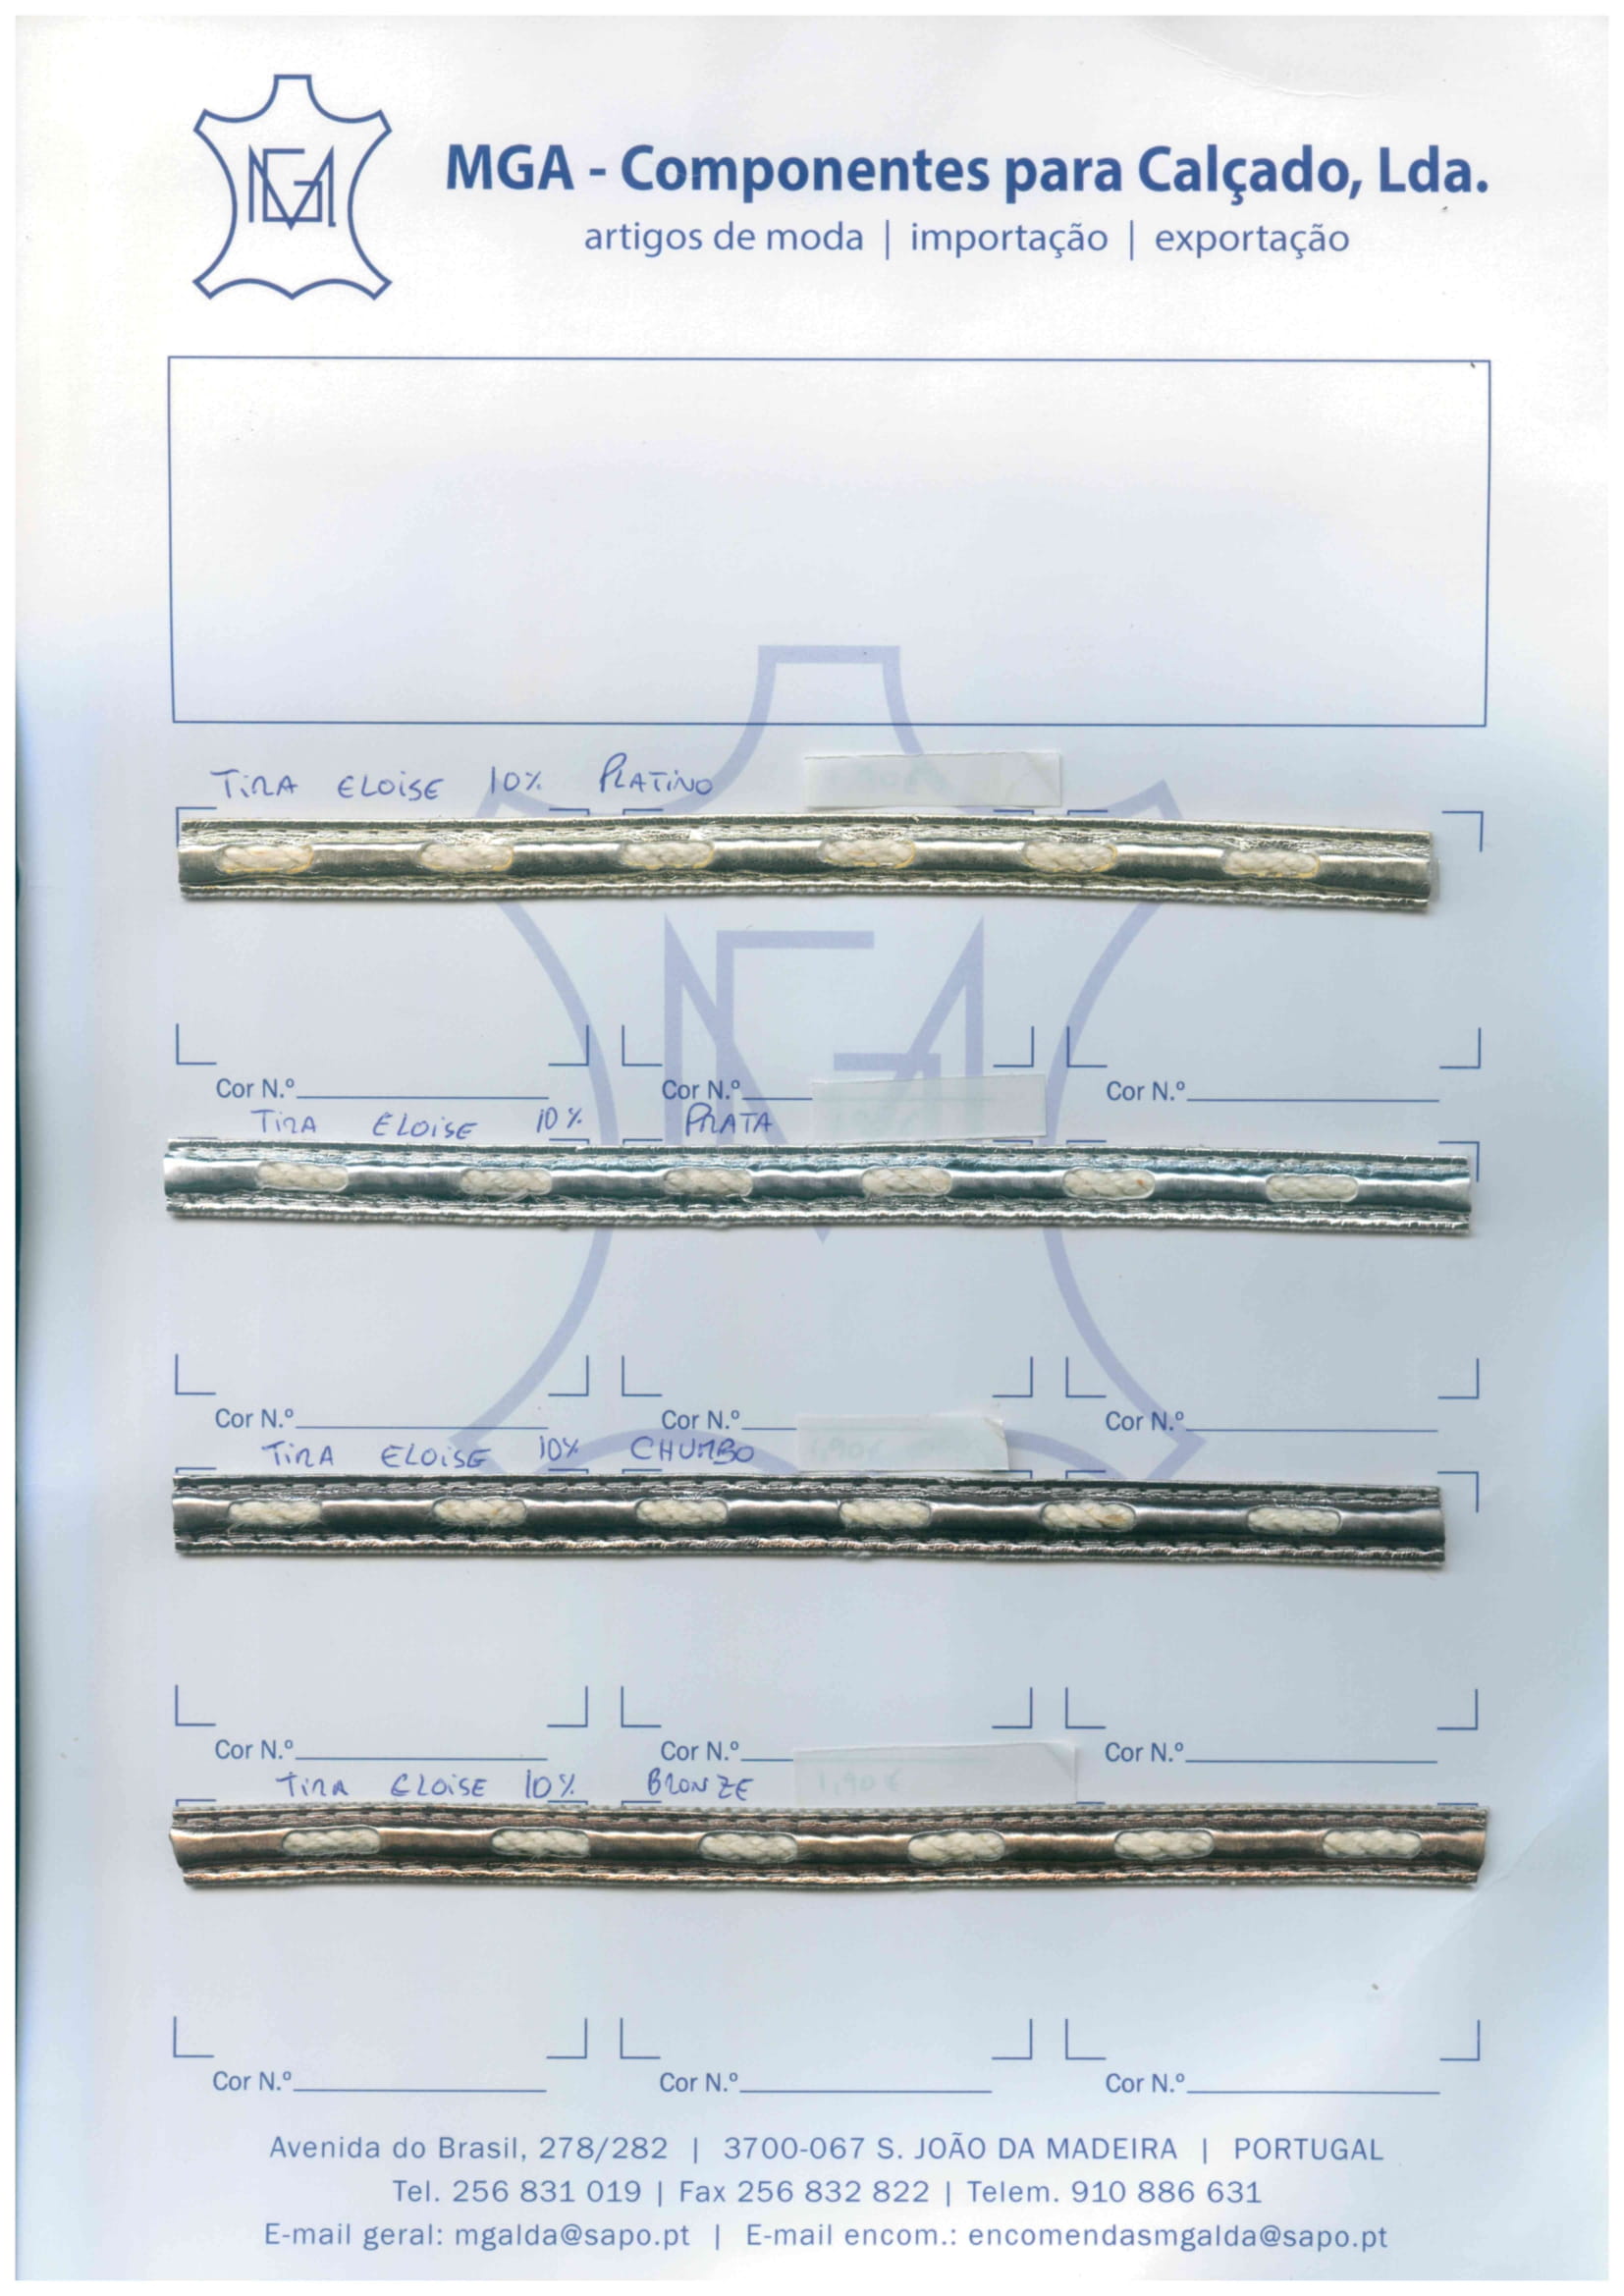 MGA - Componentes para Calçado, Lda.
artigos de moda | importação | exportação
TIRA ELOISE 10% PLATINO
Cor N.º Cor N.º Cor N.º
TIRA ELOISE 10% PRATA
Cor N.º Cor N.º Cor N.º
TIRA ELOISE 10% CHUMBO
Cor N.º Cor N.º Cor N.º
TIRA ELOISE 10% BRONZE 1,90 €
Cor N.º Cor N.º Cor N.º
Avenida do Brasil, 278/282 | 3700-067 S. JOÃO DA MADEIRA | PORTUGAL
Tel. 256 831 019 | Fax 256 832 822 | Telem. 910 886 631
E-mail geral: mgalda@sapo.pt | E-mail encom.: encomendasmgalda@sapo.pt